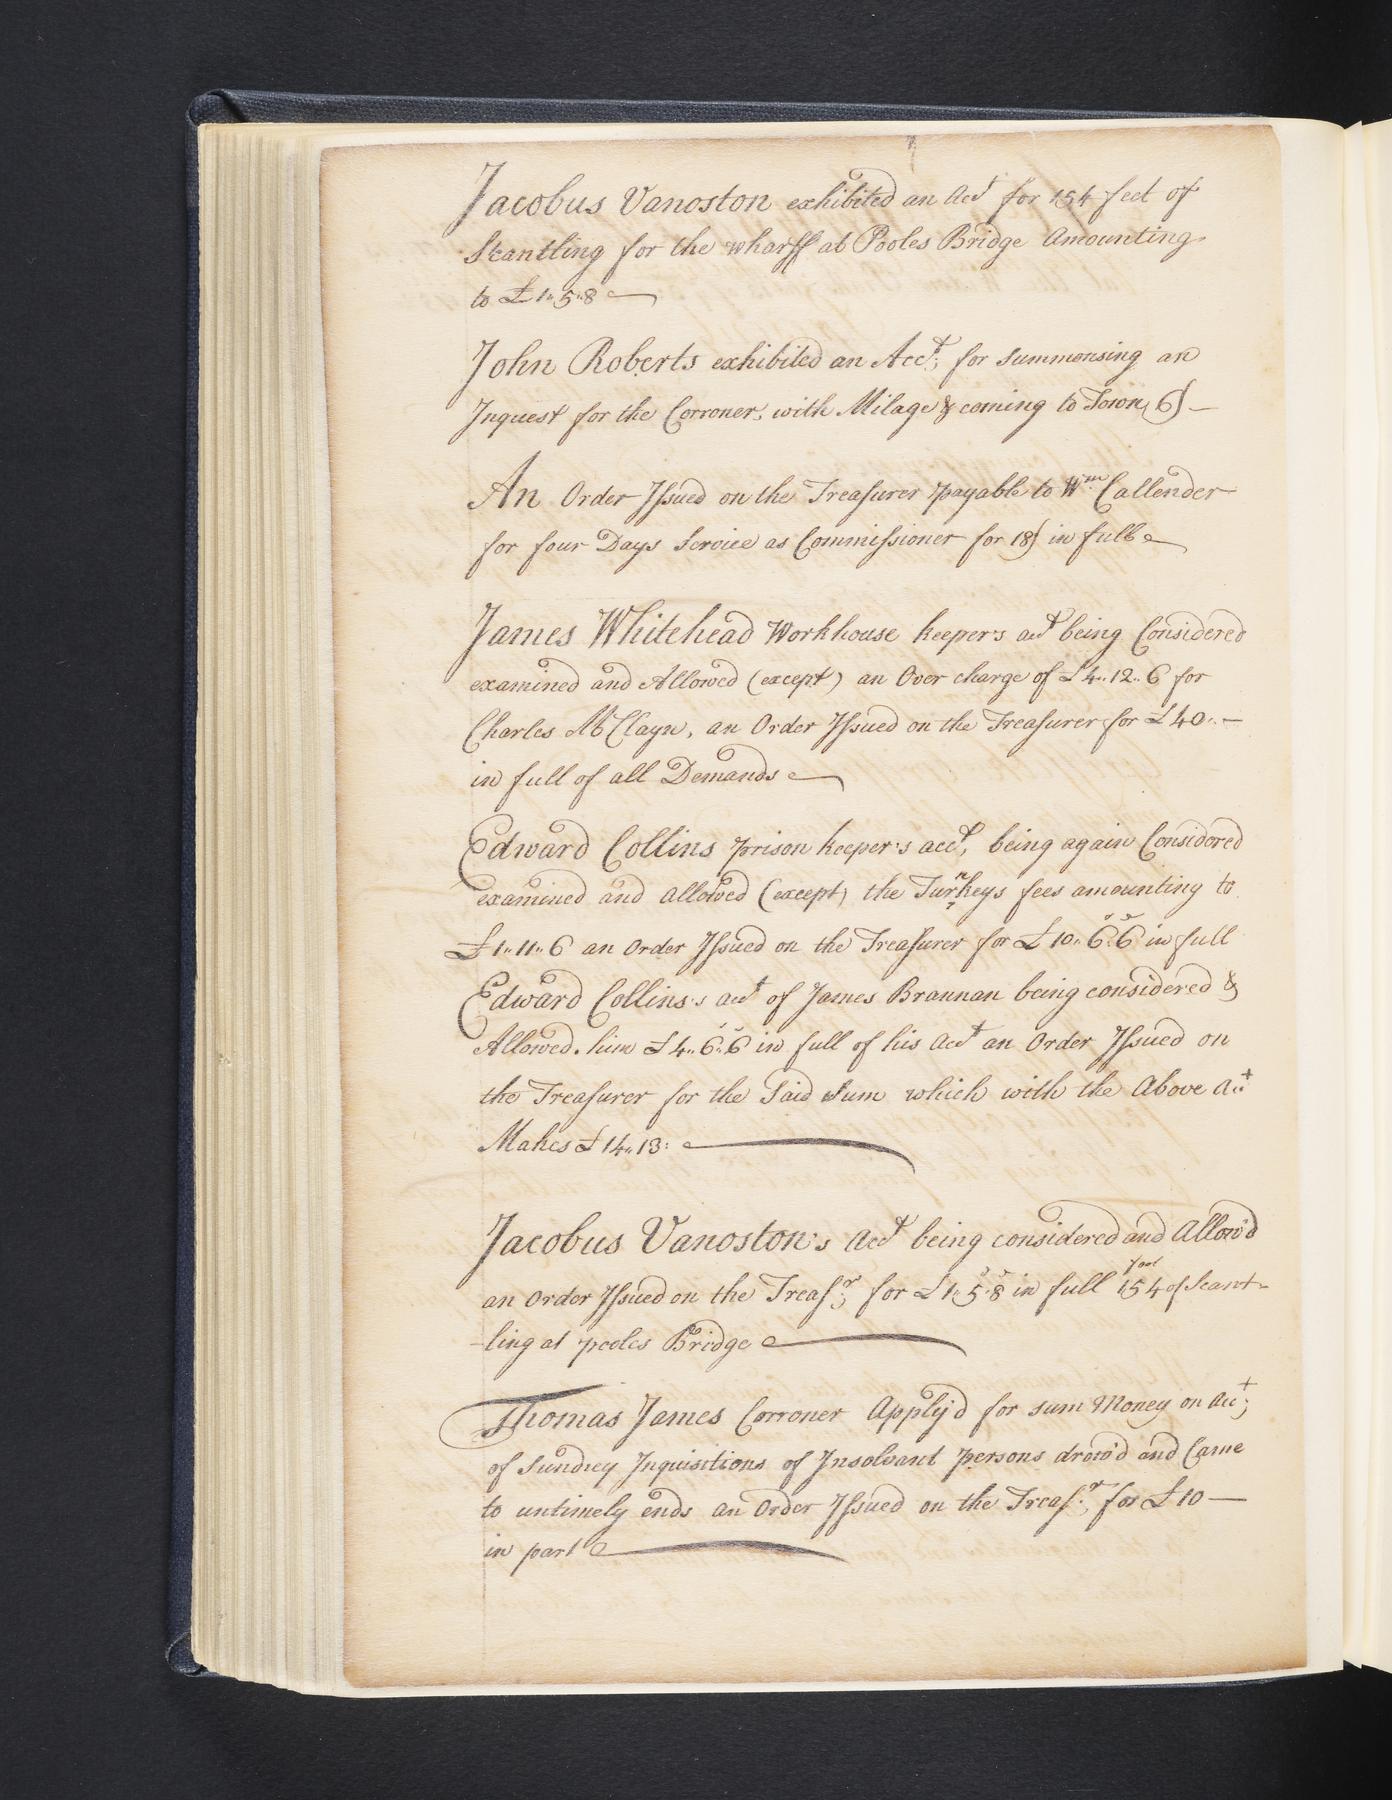 Jacobus Vanoston exhibited an Acct for 154 feet of
Skantling for the wharff at Pooles Bridge Amounting
to £ 1..5..8
John Roberts exhibited an Acct; for summonsing an
Inquest for the Corroner, with Milage & coming to Town, 6/ —
An Order Issued on the Treasurer payable to Wm Callender
for four Days Service as Commissioner for 18/ in full
James Whitehead Workhouse keeper's acct being Considered
examined and Allowed (except) an Over charge of £ 4..12..6 for
Charles McClayn, an Order Issued on the Treasurer for £ 40.. —
in full of all Demands
Edward Collins prison keeper's acct, being again Considored
examined and allowed (except) the Turnkeys fees amounting to
£ 1..11..6 an Order Issued on the Treasurer for £ 10..6..6 in full
Edward Collins's acct of James Brannan being considered &
Allowed. him £ 4..6..6 in full of his Acct an Order Issued on
the Treasurer for the Said Sum which with the Above Acct
Makes £ 14..13:
Jacobus Vanoston's Acct being considered and Allow'd
an Order Issued on the Treasr; for £ 1..5..8 in full 154 foot of Scant-
-ling at pooles Bridge
Thomas James Corroner Apply'd for sum Money on Acct;
of Sundrey Inquisitions of Insolvant persons drow'd and Came
to untimely ends an Order Issued on the Treasr; for £ 10 —
in part